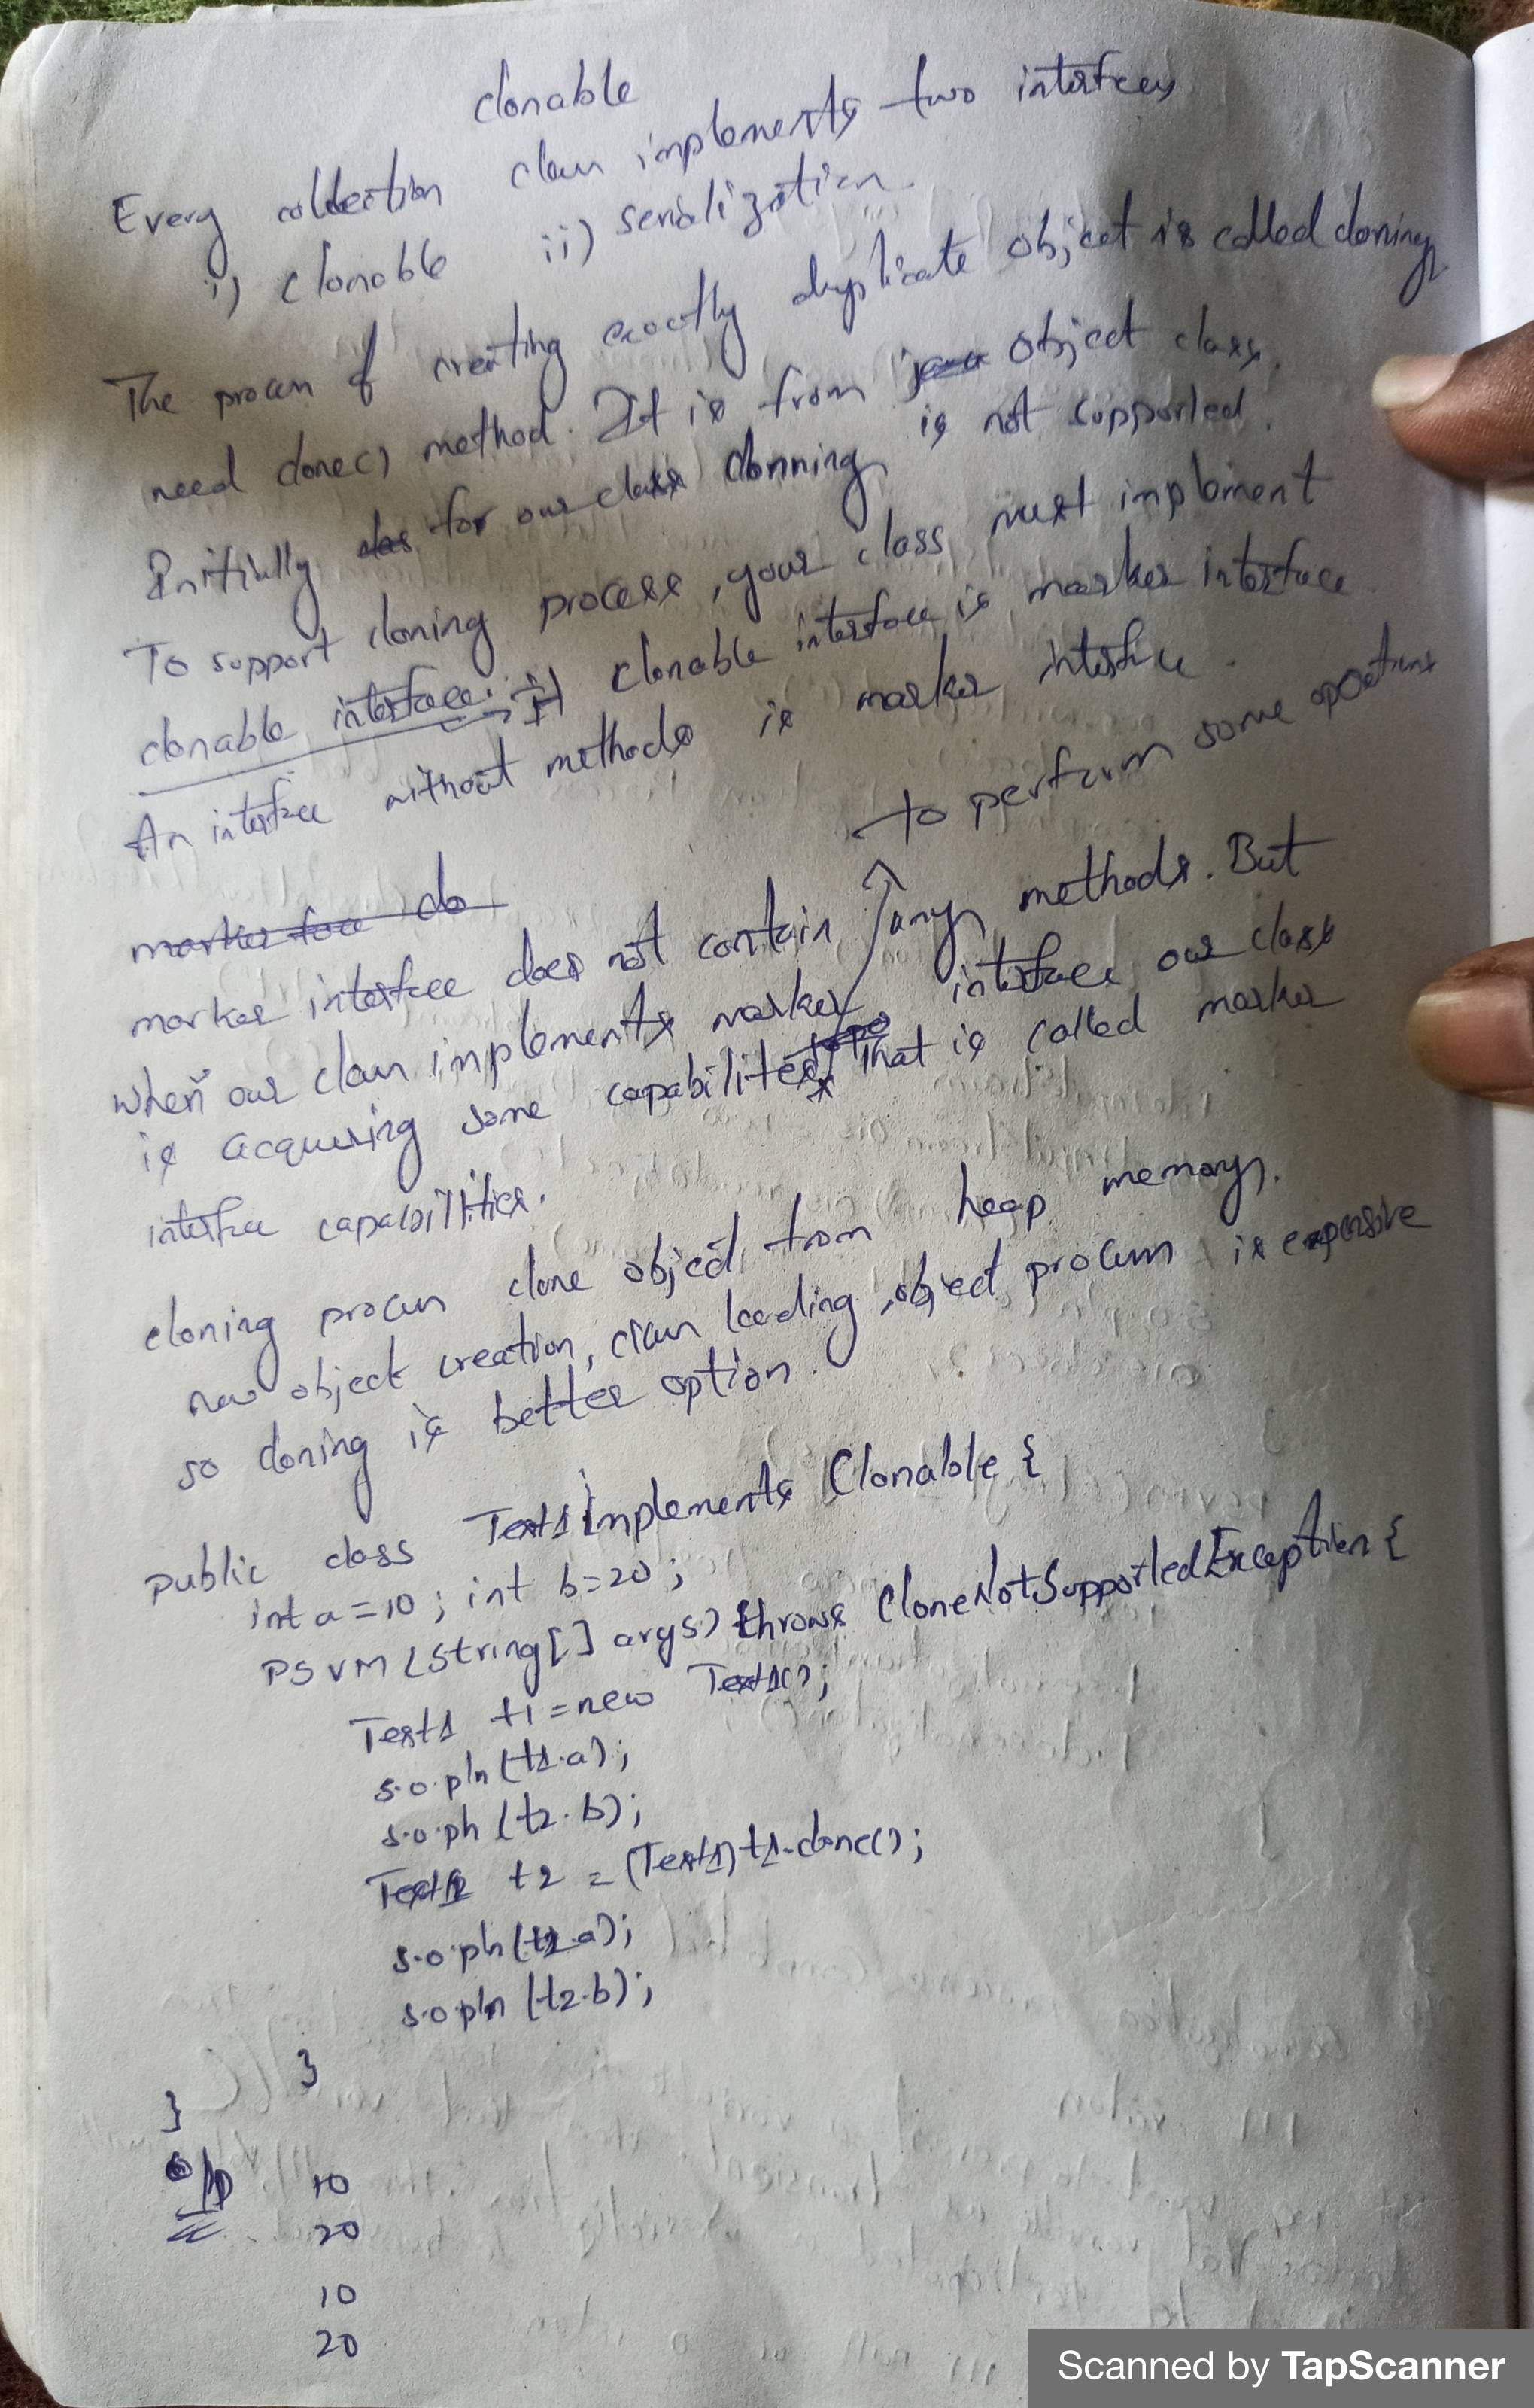 clonable
Every collection class implements two interfaces
i) clonable ii) serialization.
The process of creating exactly duplicate object is called cloning.
need clone() method. It is from java Object class.
Initially for our class clonning is not supported.
To support cloning process, your class must implement
clonable interface. → clonable interface is marker interface.
An interface without methods is marker interface.
to perform some operations
marker do
marker interface does not contain any methods. But
when our class implements marker interface our class
is acquiring some capabilites that is called marker
interface capabilities.
cloning process clone object from heap memory.
new object creation, class loading, object process is expensive
so cloning is better option.
public class Test1 implements Clonable {
int a = 10; int b = 20;
PSVM (String[] args) throws CloneNotSupportedException {
Test1 t1 = new Test1();
s.o.pln (t1.a);
s.o.pln (t2.b);
Test1 t2 = (Test1) t1.clone();
s.o.pln (t2.a);
s.o.pln (t2.b);
}
}
o/p 10
20
10
20
Scanned by TapScanner